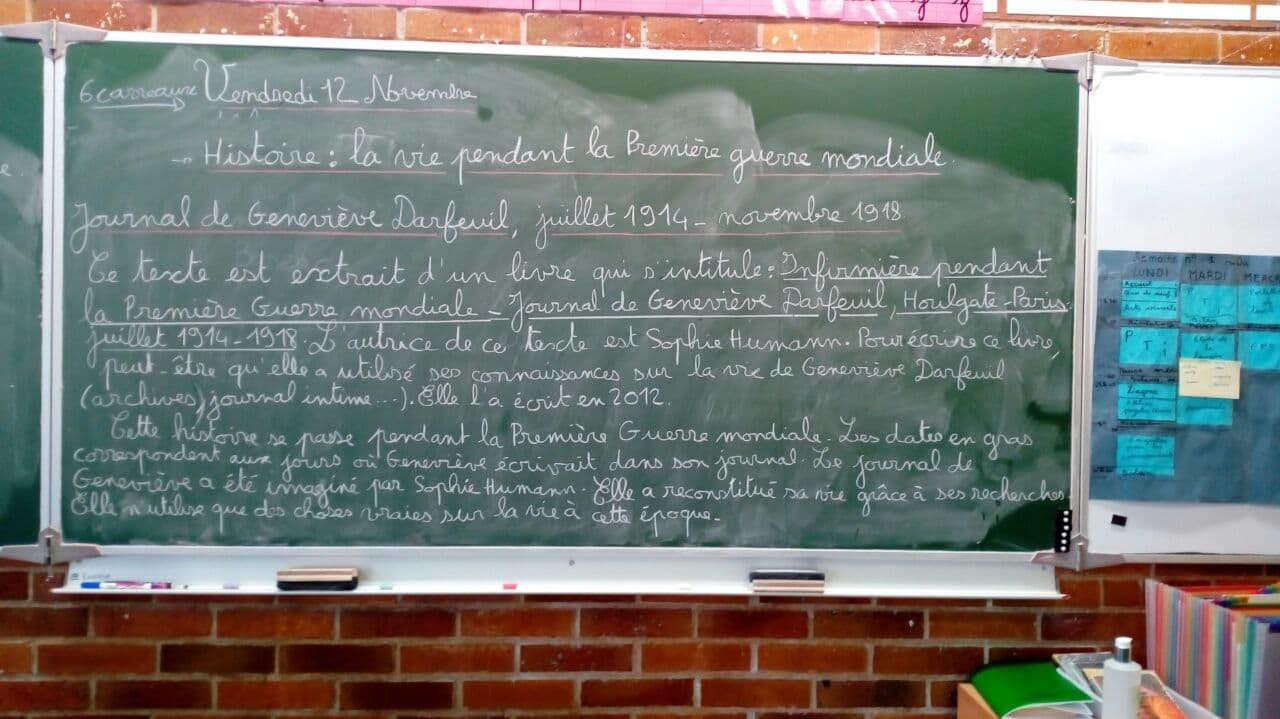 6 carreaux Vendredi 12 Novembre
- Histoire : la vie pendant la Première guerre mondiale.
Journal de Geneviève Darfeuil, juillet 1914 - novembre 1918
Ce texte est extrait d'un livre qui s'intitule : Infirmière pendant
la Première Guerre mondiale - Journal de Geneviève Darfeuil, Houlgate - Paris
juillet 1914 - 1918. L'autrice de ce texte est Sophie Humann. Pour écrire ce livre,
peut-être qu'elle a utilisé ses connaissances sur la vie de Geneviève Darfeuil
(archives, journal intime ...). Elle l'a écrit en 2012.
Cette histoire se passe pendant la Première Guerre mondiale. Les dates en gras
correspondent aux jours où Geneviève écrivait dans son journal. Le journal de
Geneviève a été imaginé par Sophie Humann. Elle a reconstitué sa vie grâce à ses recherches.
Elle n'utilise que des choses vraies sur la vie à cette époque.
Semaine n°
LUNDI MARDI MERC
Accueil
P T i